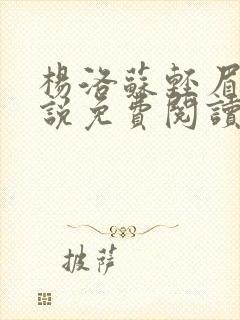 楊洛蘇輕眉
說免費閱讀
披薩